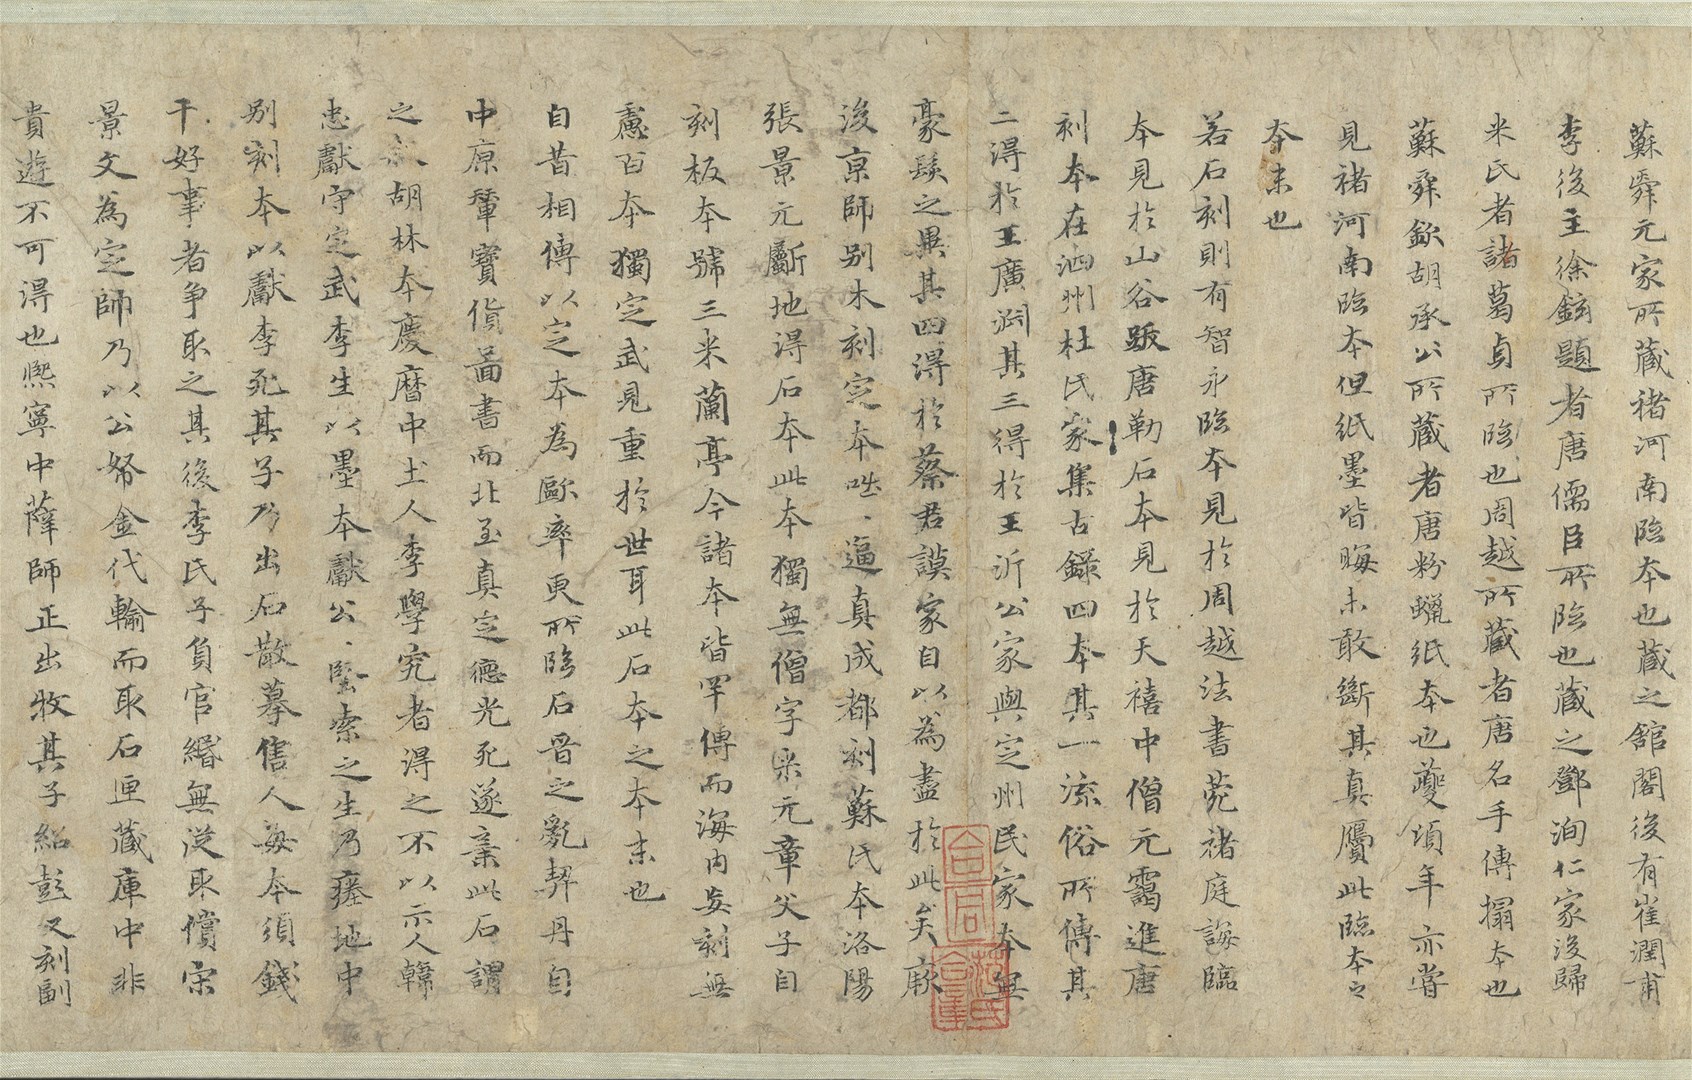 蘇舜元家所藏褚河南臨本也藏之館閣後有崔潤甫
李後主徐鉉題者唐儒臣所臨也藏之鄧洵仁家後歸
米氏者諸葛貞所臨也周越所藏者唐名手傳搨本也
蘇舜欽胡承公所藏者唐粉蠟紙本也夔頃年亦嘗
見褚河南臨本但紙墨皆晦未敢斷其真贗此臨本之
本末也
若石刻則有智永臨本見於周越法書苑褚庭誨臨
本見於山谷跋唐勒石本見於天禧中僧元靄進唐
刻本在泗州杜氏家集古錄四本其一流俗所傳其
二得於王廣淵其三得於王沂公家與定州民家本無
豪髮之異其四得於蔡君謨家自以為盡於此矣厥
後京師別木刻定本咄、逼真成都刻蘇氏本洛陽
張景元斸地得石本此本獨無僧字米元章父子自
刻板本號三米蘭亭今諸本皆罕傳而海內妄刻無
慮百本獨定武見重於世耳此石本之本末也
自昔相傳以定本為歐率更所臨石晉之亂契丹自
中原輦寶貨圖書而北至真定德光死遂棄此石謂
之 胡林本慶曆中土人李學究者得之不以示人韓
忠獻守定武李生以墨本獻公、堅索之生乃瘞地中
別刻本以獻李死其子乃出石散摹售人每本須錢
千好事者争取之其後李氏子負官緡無從取償宋
景文為定師乃以公帑金代輸而取石匣藏庫中非
貴遊不可得也熙寧中薛師正出牧其子紹彭又刻副
合同
范氏